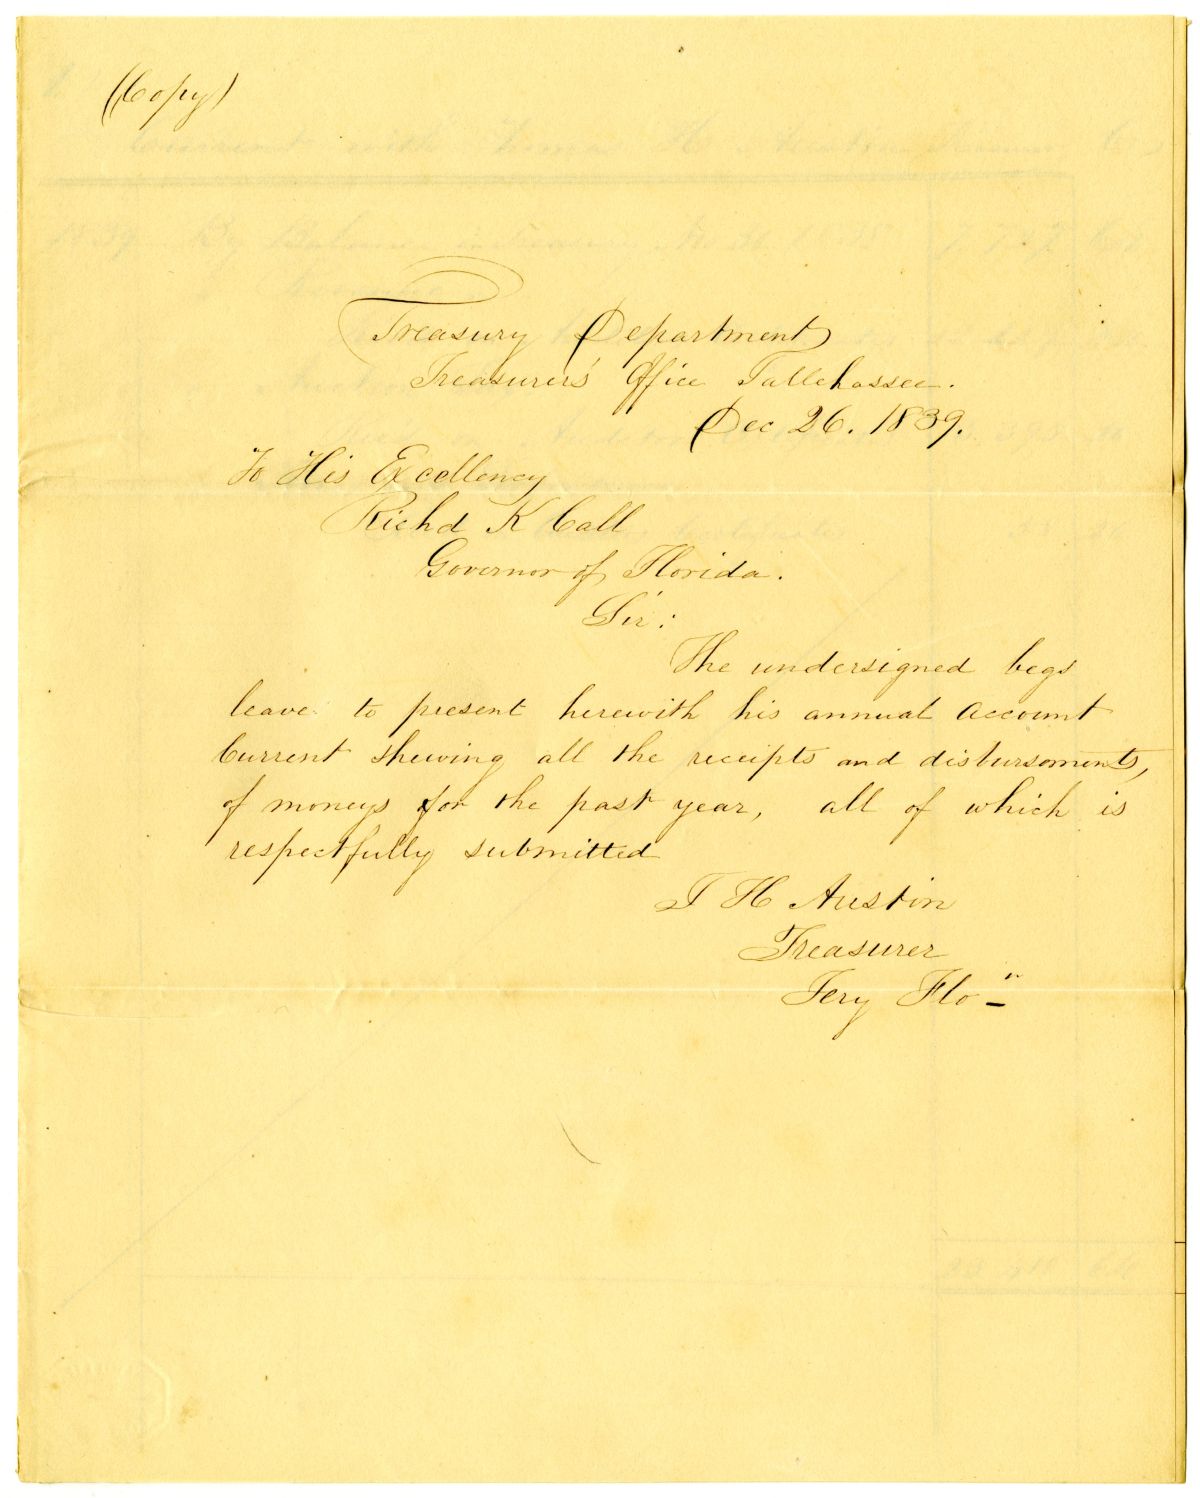 (Copy)
Treasury Department
Treasurer's Office Tallehassee.
Dec 26. 1839.
To His Excellency
Richd K Call
Governor of Florida.
Sir:
The undersigned begs
leave to present herewith his annual account
Current shewing all the receipts and disbursements,
of moneys for the past year, all of which is
respectfully submitted
T H Austin
Treasurer
Tery Flo